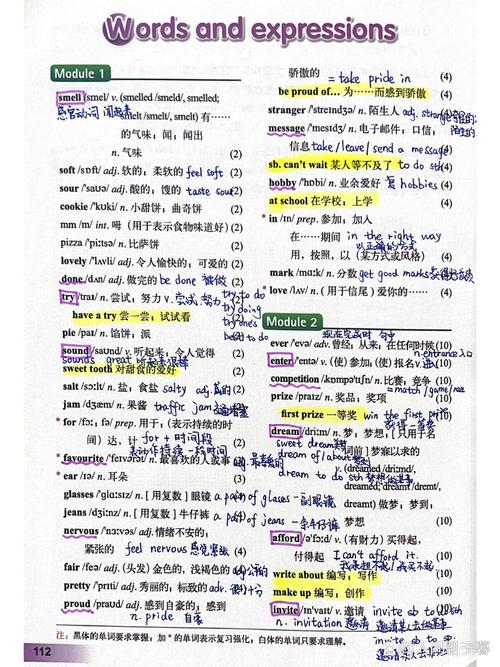 Words and expressions
Module 1
smell /smel/ v. (smelled /smeld/, smelled;
感官动词 闻起来 smelt /smelt/, smelt) 有……
的气味；闻；闻出
n. 气味 (2)
soft /sɒft/ adj. 软的；柔软的 feel soft (2)
sour /'saʊə/ adj. 酸的；馊的 taste sour (2)
cookie /'kʊki/ n. 小甜饼；曲奇饼 (2)
mm /m/ int. 呣（用于表示食物味道好）(2)
pizza /'piːtsə/ n. 比萨饼 (2)
lovely /'lʌvli/ adj. 令人愉快的；可爱的 (2)
done /dʌn/ adj. 做完的 be done 被做 (2)
try /traɪ/ n. 尝试；努力 v. 尝试、努力 (2)
try to do
try doing
try ones
best to do
have a try 尝一尝；试试看 (2)
pie /paɪ/ n. 馅饼；派 (2)
sound /saʊnd/ v. 听起来，令人觉得 (2)
sounds great 听起来很棒
sweet tooth 对甜食的爱好 (2)
salt /sɔːlt/ n. 盐；食盐 salty adj. 咸的 (2)
jam /dʒæm/ n. 果酱 traffic jam 交通堵塞 (2)
* for /fɔː; fə/ prep. 用于；(表示持续的时
间) 达，计 for + 时间段 (2)
表动作持续一段时间
* favourite /'feɪvərət/ n. 最喜欢的人或事 adj. 最喜欢的
* ear /ɪə/ n. 耳朵 (2)
glasses /'ɡlɑːsɪz/ n. [用复数] 眼镜 a pair of glasses 一副眼镜
jeans /dʒiːnz/ n. [用复数] 牛仔裤 a pair of jeans 一条牛仔裤
nervous /'nɜːvəs/ adj. 情绪不安的；
紧张的 feel nervous 感觉紧张 (4)
fair /feə/ adj. (头发) 金色的，浅褐色的 adj. 公平的 (4)
pretty /'prɪti/ adj. 秀丽的；标致的 adv. 十分 (4)
proud /praʊd/ adj. 感到自豪的；感到
n. pride 自豪
骄傲的 = take pride in (4)
be proud of... 为……而感到骄傲 (4)
stranger /'streɪndʒə/ n. 陌生人 adj. strange 奇怪的；陌生的 (4)
message /'mesɪdʒ/ n. 电子邮件；口信；
信息 take / leave / send a message (4)
sb. can't wait 某人等不及了 to do sth (4)
hobby /'hɒbi/ n. 业余爱好 复 hobbies (4)
at school 在学校；上学 (4)
* in /ɪn/ prep. 参加；加入
在……期间 in the right way
以正确的方式
用，按照，以（某方式或风格）(4)
mark /mɑːk/ n. 分数 get good marks (4)
* love /lʌv/ n. (用于信尾) 爱你的…… (4)
Module 2
现在完成时 句中
ever /'evə/ adv. 曾经；从来；在任何时候 (10)
n. entrance 入口
enter /'entə/ v. (使) 参加；(使) 报名 v. 进入 (10)
competition /ˌkɒmpə'tɪʃn/ n. 比赛；竞争 (10)
= match / game / race
prize /praɪz/ n. 奖品；奖项 (10)
first prize 一等奖 win the first prize (10)
获得一等奖
dream /driːm/ n. 梦；梦想；[只用于名
sweet dream
词前] 梦寐以求的
dream of / about
v. (dreamed /driːmd/,
dream to do sth
dreamed; dreamt /dremt/,
dreamt) 做梦；梦到；
梦想 (10)
afford /ə'fɔːd/ v. (有财力) 买得起，
付得起 I can't afford it. (10)
write about 编写；写作 (10)
make up 编写；创作 (10)
invite /ɪn'vaɪt/ v. 邀请 invite sb to do sth (10)
n. invitation 邀请 邀请某人去做某事
invite sb to sp.
注：黑体的单词要求掌握；加 * 的单词表示复习强化；白体的单词只要求理解。
112